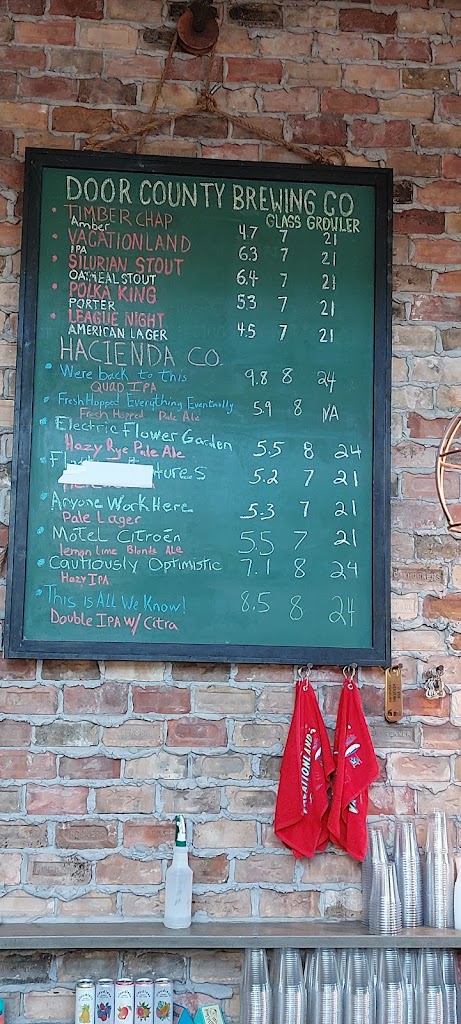 DOOR COUNTY BREWING CO
GLASS GROWLER
• TIMBER CHAP 4.7 7 21
Amber
• VACATIONLAND 6.3 7 21
IPA
• SILURIAN STOUT 6.4 7 21
OATMEAL STOUT
• POLKA KING 5.3 7 21
PORTER
• LEAGUE NIGHT 4.5 7 21
AMERICAN LAGER
HACIENDA CO.
• Were back to this 9.8 8 24
QUAD IPA
• Fresh Hopped Everything Eventually 5.9 8 NA
Fresh Hopped Pale Ale
• Electric Flower Garden 5.5 8 24
Hazy Rye Pale Ale
5.2 7 21
• Anyone Work Here 5.3 7 21
Pale Lager
• Motel Citroën 5.5 7 21
lemon lime Blonde Ale
• Cautiously Optimistic 7.1 8 24
Hazy IPA
• This is All We Know! 8.5 8 24
Double IPA w/ Citra
VACATIONLAND